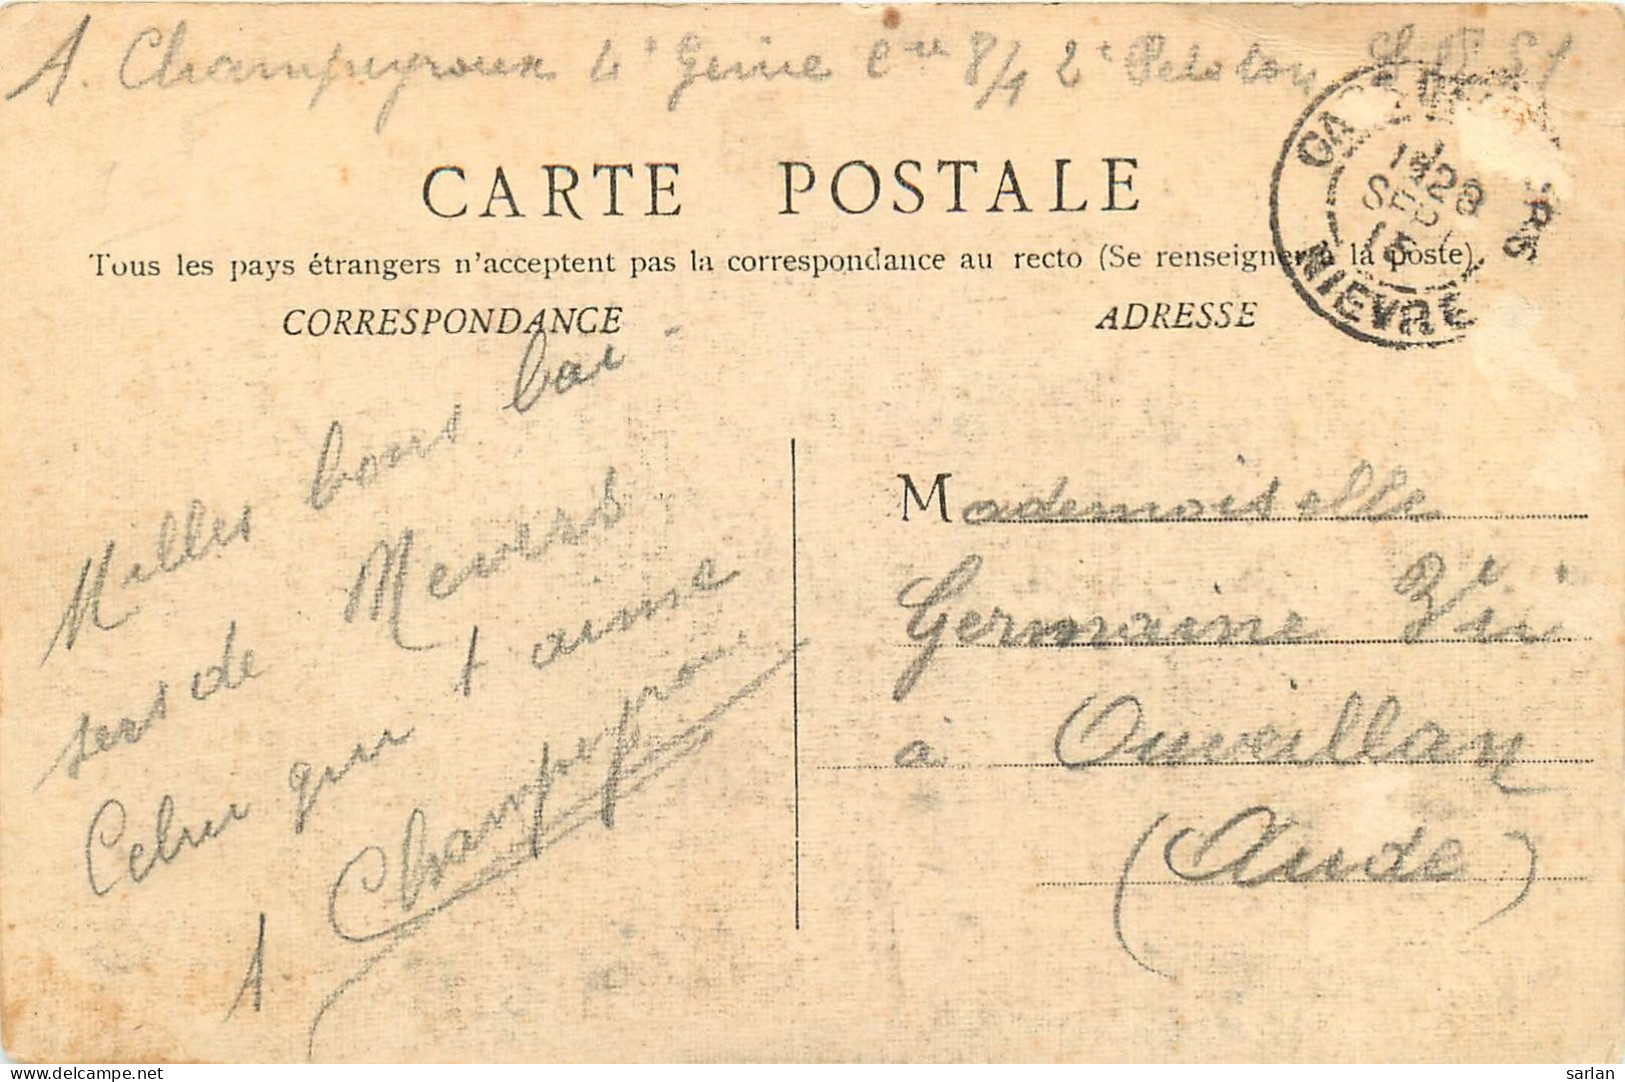 A. Champeyroux 4e Genie Cie 8/4 2e Peloton
CARTE POSTALE
Tous les pays étrangers n'acceptent pas la correspondance au recto (Se renseigner à la poste)
CORRESPONDANCE
ADRESSE
GARE
RS
28
SEPT
15
NIEVRE
Milles bons bai
sers de Nevers
Celui qui t aime
A. Champeyroux
Mademoiselle
Germaine
à Ouveillan
(Aude)
delcampe.net
sarlan